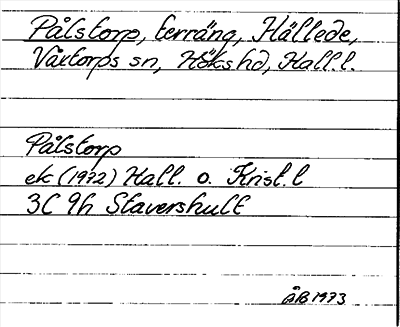 Pålstorp, terräng, Hällede,
Våxtorps sn, Höks hd, Hall.l.
Pålstorp
ek (1972) Hall. o. Krist.l
3C 9h Stavershult
ÅB 1973